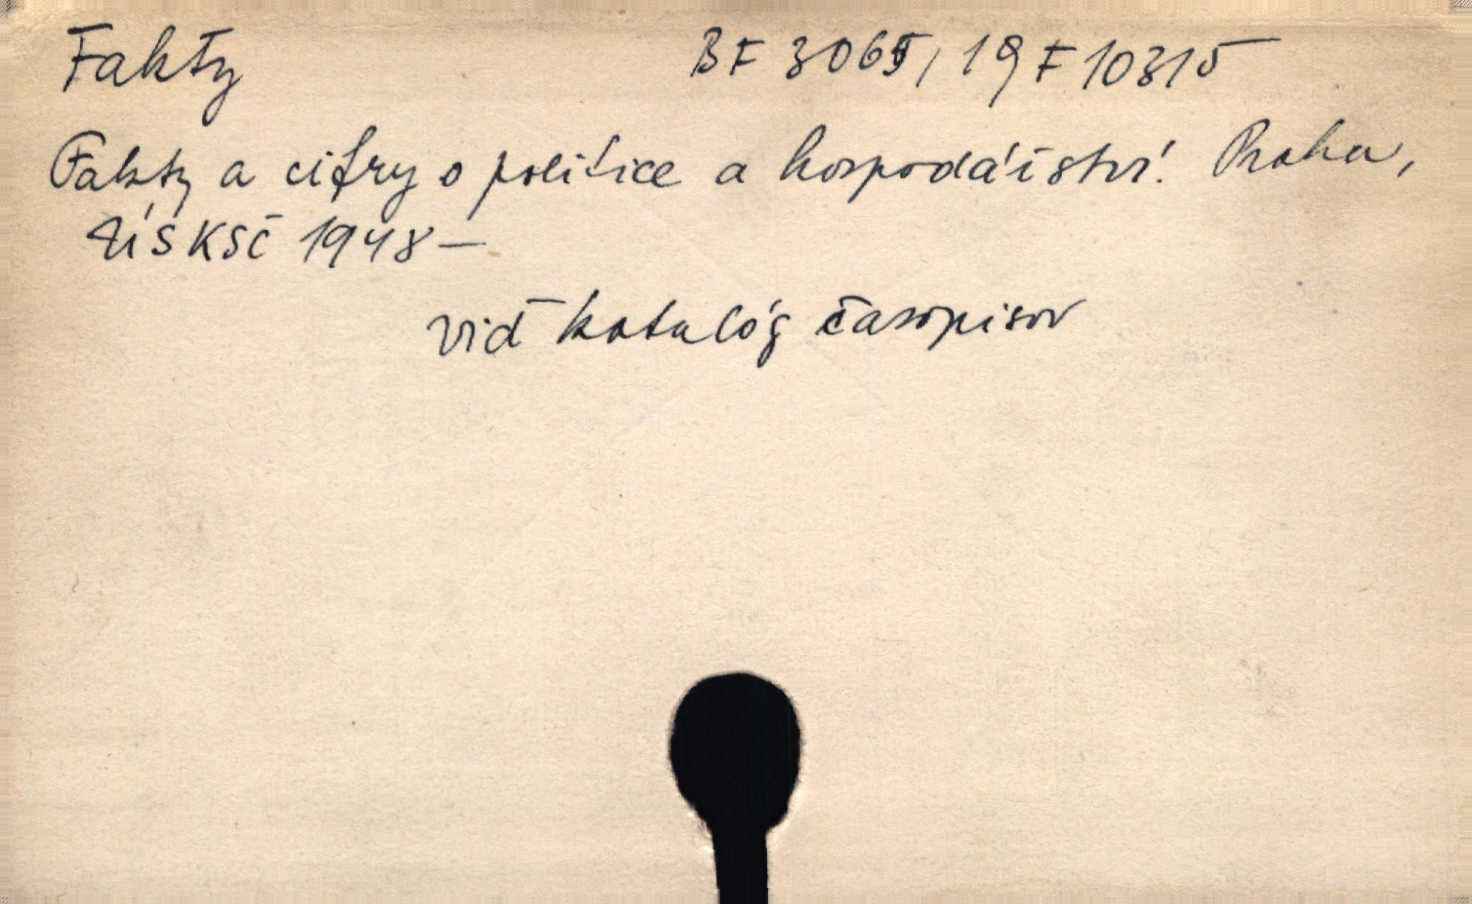 Fakty BF 3065, 19 F 10315
Fakty a cifry o politice a hospodářství. Praha,
ÚS KSČ 1948-
viď katalóg časopisov